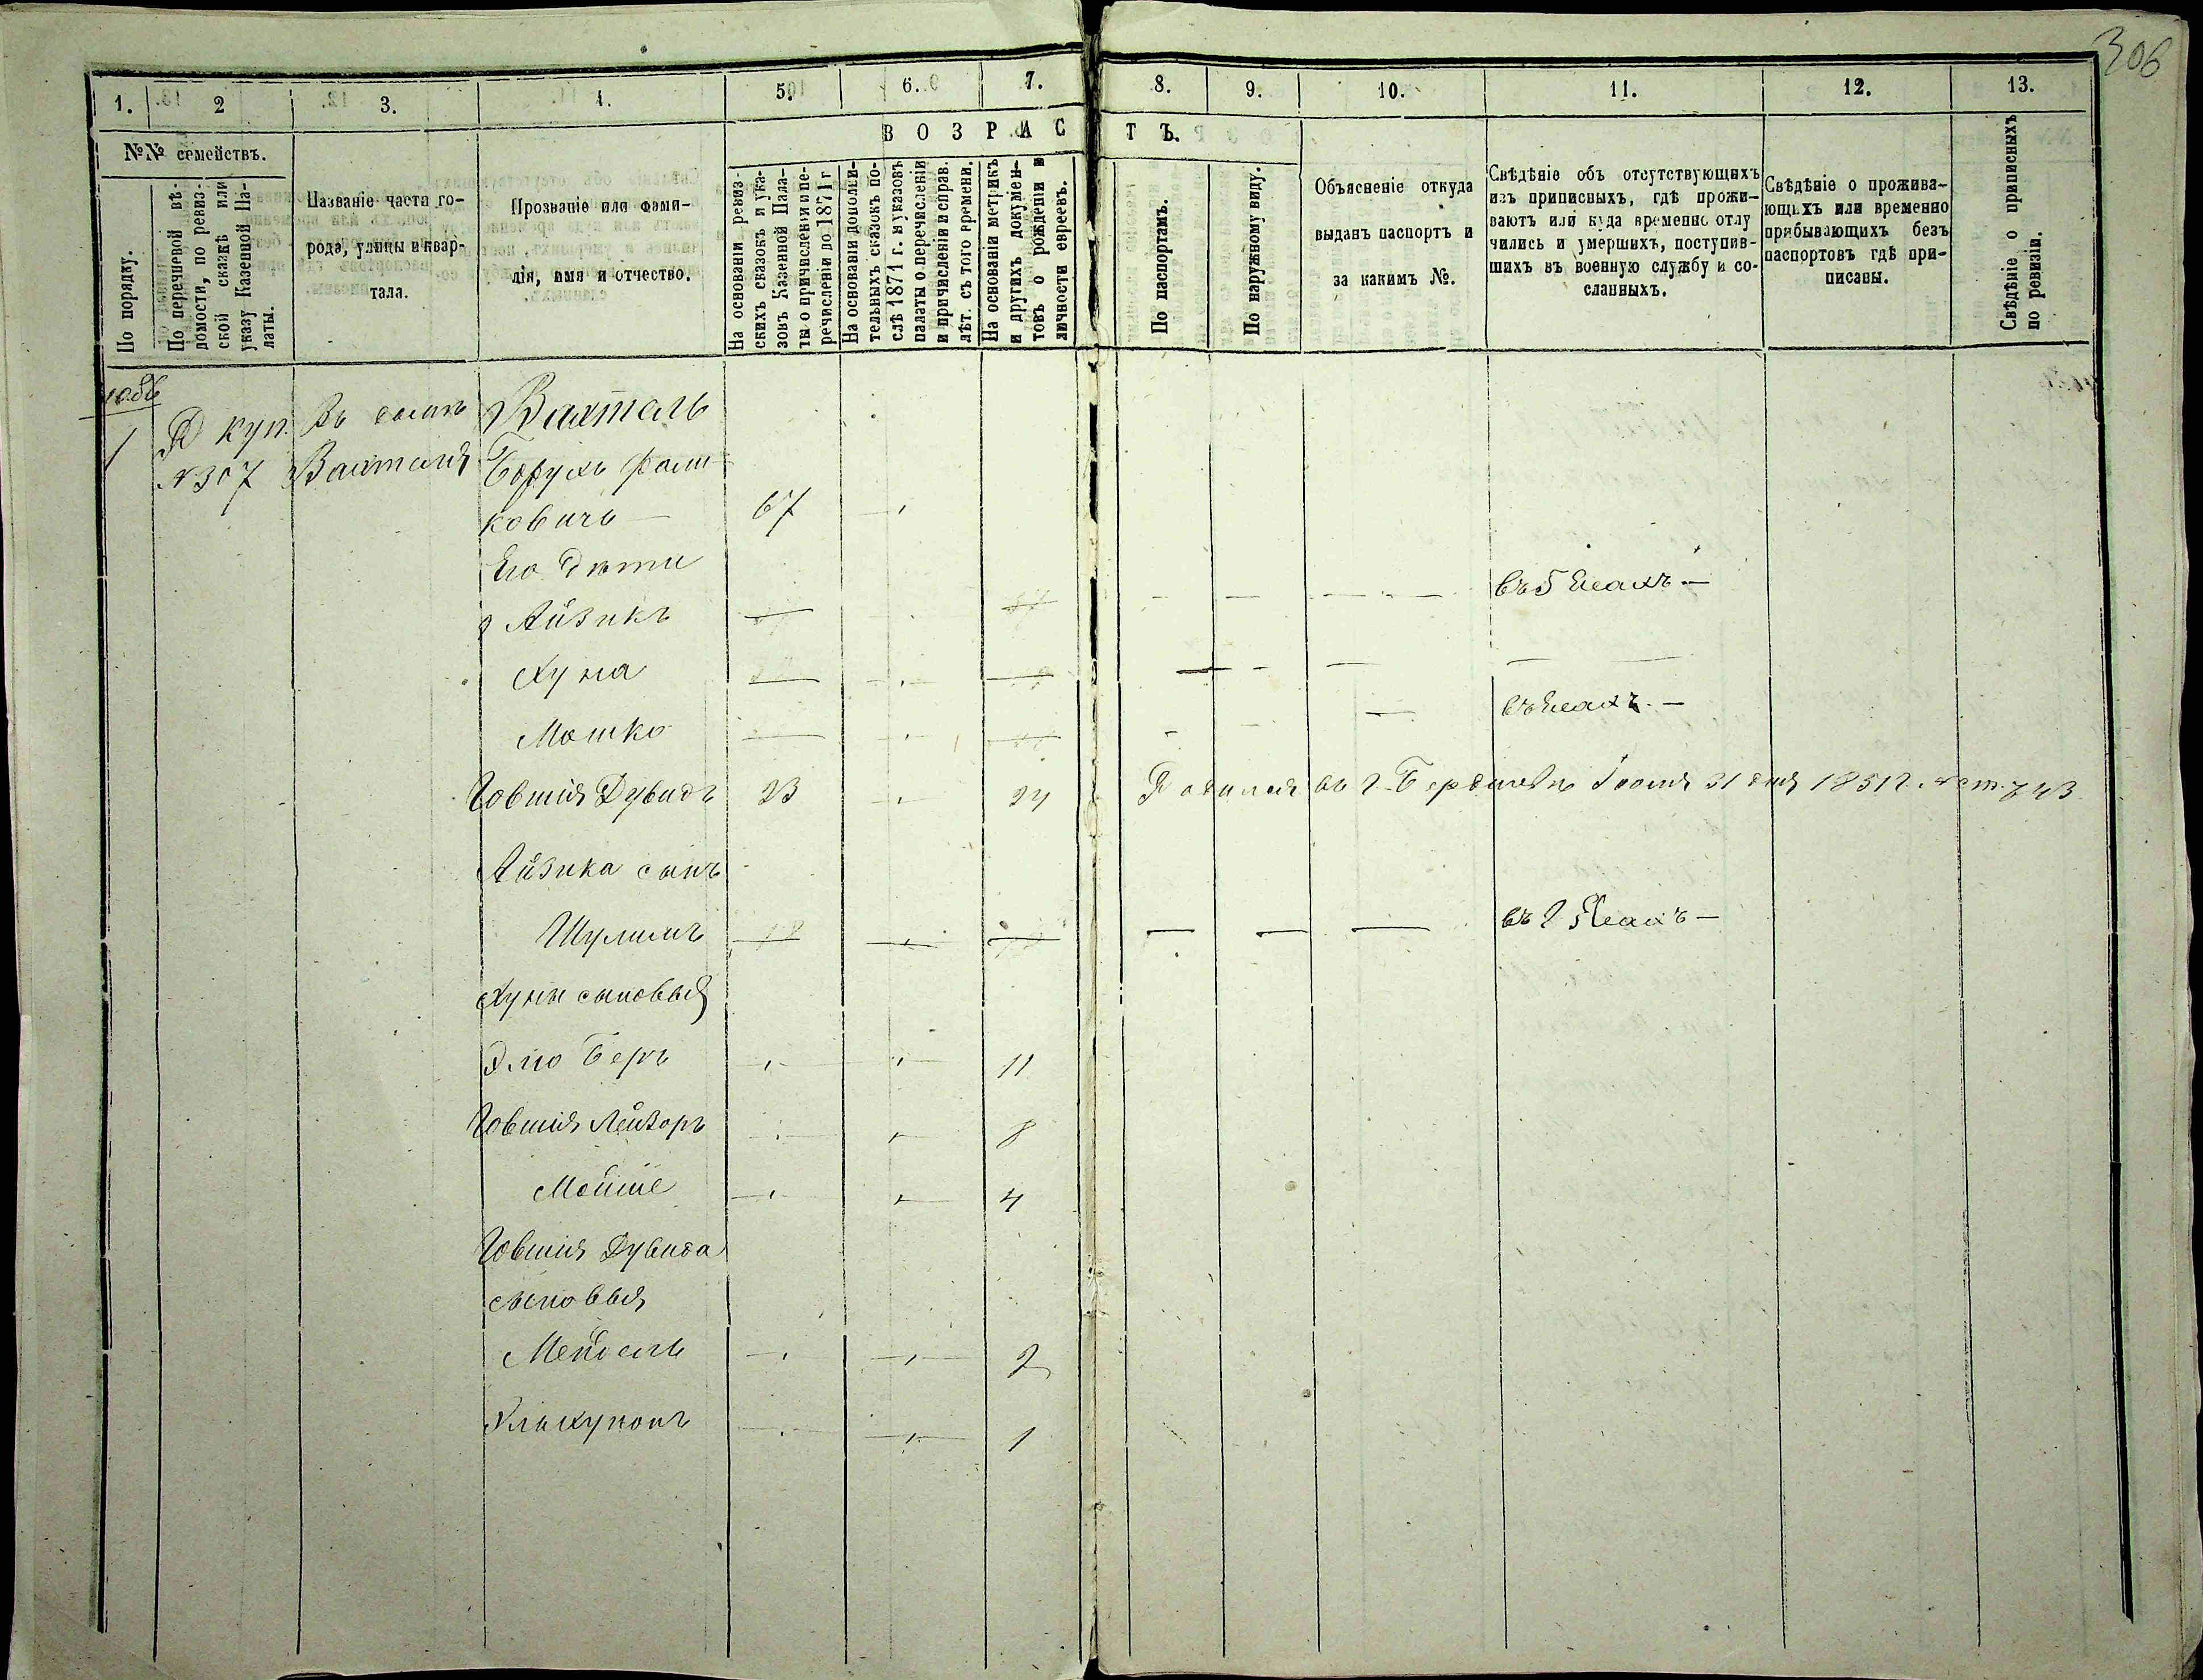 306
1.
2
3.
4.
5.
6.
7.
8.
9.
10.
11.
12.
13.
ВОЗРАСТЪ.
№№ семействъ.
По порядку.
По перечневой вѣ-
домости, по ревиз-
ской сказкѣ или
указу Казенной Па-
латы.
Названіе части го-
рода, улицы и квар-
тала.
Прозваніе или фами-
лія, имя и отчество.
На основаніи ревиз-
скихъ сказокъ и ука-
зовъ Казенной Пала-
ты о причисленіи и пе-
речисленіи до 1871 г
На основаніи дополни-
тельныхъ сказокъ по-
слѣ 1871 г. и указовъ
палаты о перечисленіи
и причисленіи и справ.
лѣт. съ того времени.
На основаніи метрикъ
и другихъ докумен-
товъ о рожденіи и
личности евреевъ.
По паспортамъ.
По наружному виду.
Объясненіе откуда
выданъ паспортъ и
за какимъ №.
Свѣдѣніе объ отсутствующихъ
изъ приписныхъ, гдѣ прожи-
ваютъ или куда временно отлу
чились и умершихъ, поступив-
шихъ въ военную службу и со-
сланныхъ.
Свѣдѣніе о прожива-
ющихъ или временно
прибывающихъ безъ
паспортовъ гдѣ при-
писаны.
Свѣдѣніе о приписныхъ
по ревизіи.
1086
1
куп.
№ 307
Въ
Вахтеля
Вахтель
Борухъ Фали-
ковичъ — 67
Его дѣти
Айзикъ
Хуна
Мошко
Іовшія Дувидъ 23 24 Родился въ г. Бердичевѣ Іюля 31 дня 1851 г. 743
Айзика сынъ
Шулимъ 18
Хуны сыновья
Элю Беръ 11
Іовшія Лейзоръ 8
Мойше 4
Іовшія Дувида
сыновья
Мендель 2
1